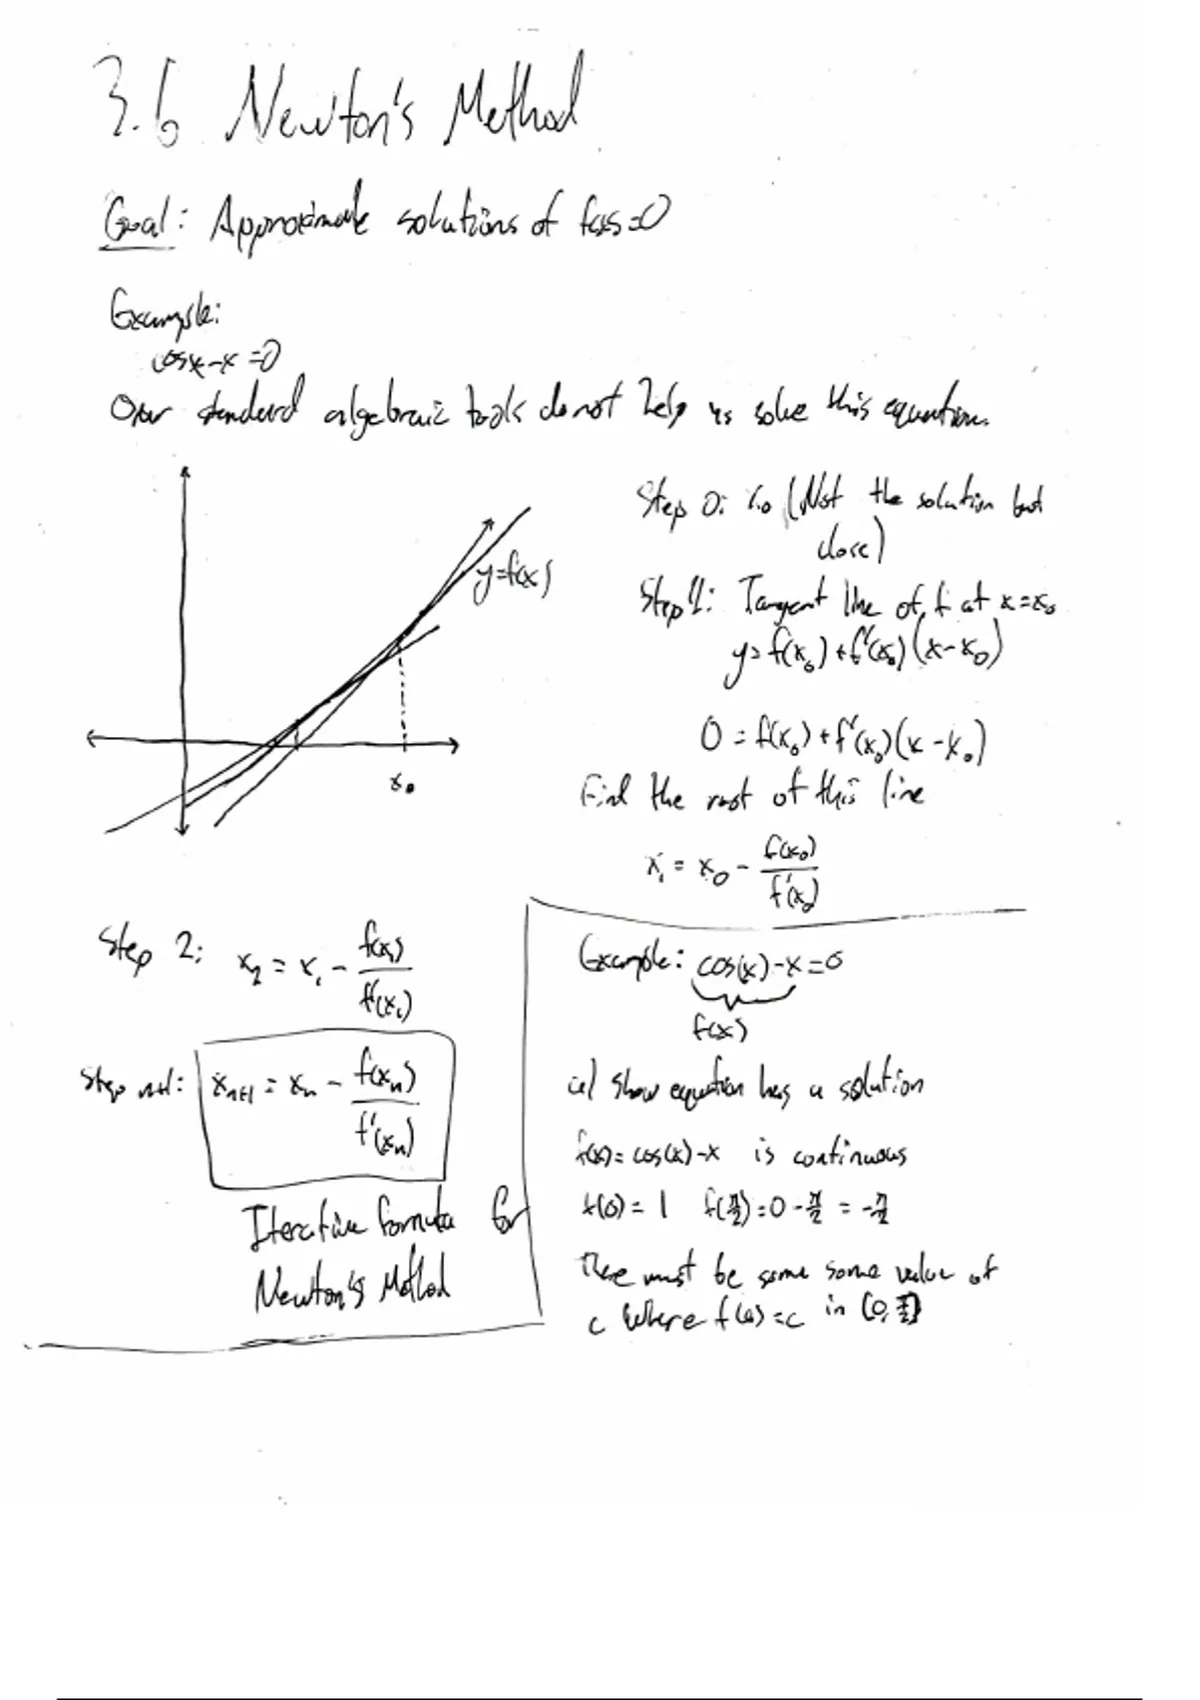 3.6 Newton's Method
Goal: Approximate solutions of f(x)=0
Example:
cosx-x=0
Our standard algebraic tools do not help us solve this equation.
y=f(x)
x₀
Step 0: x₀ (Not the solution but
close)
Step 1: Tangent line of f at x=x₀
y=f(x₀)+f'(x₀)(x-x₀)
0=f(x₀)+f'(x₀)(x-x₀)
Find the root of this line
x₁ = x₀ - f(x₀)/f'(x₀)
Step 2: x₂ = x₁ - f(x₁)/f'(x₁)
Step n+1: xₙ₊₁ = xₙ - f(xₙ)/f'(xₙ)
Iterative formula for
Newton's Method
Example: cos(x)-x=0
f(x)
a) show equation has a solution
f(x)=cos(x)-x is continuous
f(0)=1 f(π/2)=0-π/2=-π/2
There must be some some value of
c where f(0)=c in [0,π/2]